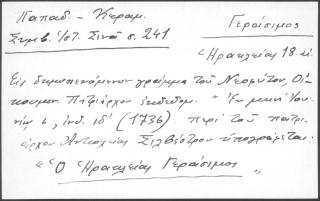 Παπαδ. - Κεραμ.
Γεράσιμος
Συμβ. ἱστ. Σινᾶ σ. 241
Ἡρακλείας 18. αἰ.
Εἰς δημοσιευόμενον γράμμα τοῦ Νεοφύτου, Οἰ
κουμεν. Πατριάρχου ἐκδεδομ. "Ἐν μηνὶ Ἰου
νίῳ , ἰνδ. ιδ' (1736) περὶ τοῦ πατρι
άρχου Ἀντιοχείας Σιλβέστρου ὑπογράφεται:
"Ὁ Ἡρακλείας Γεράσιμος"